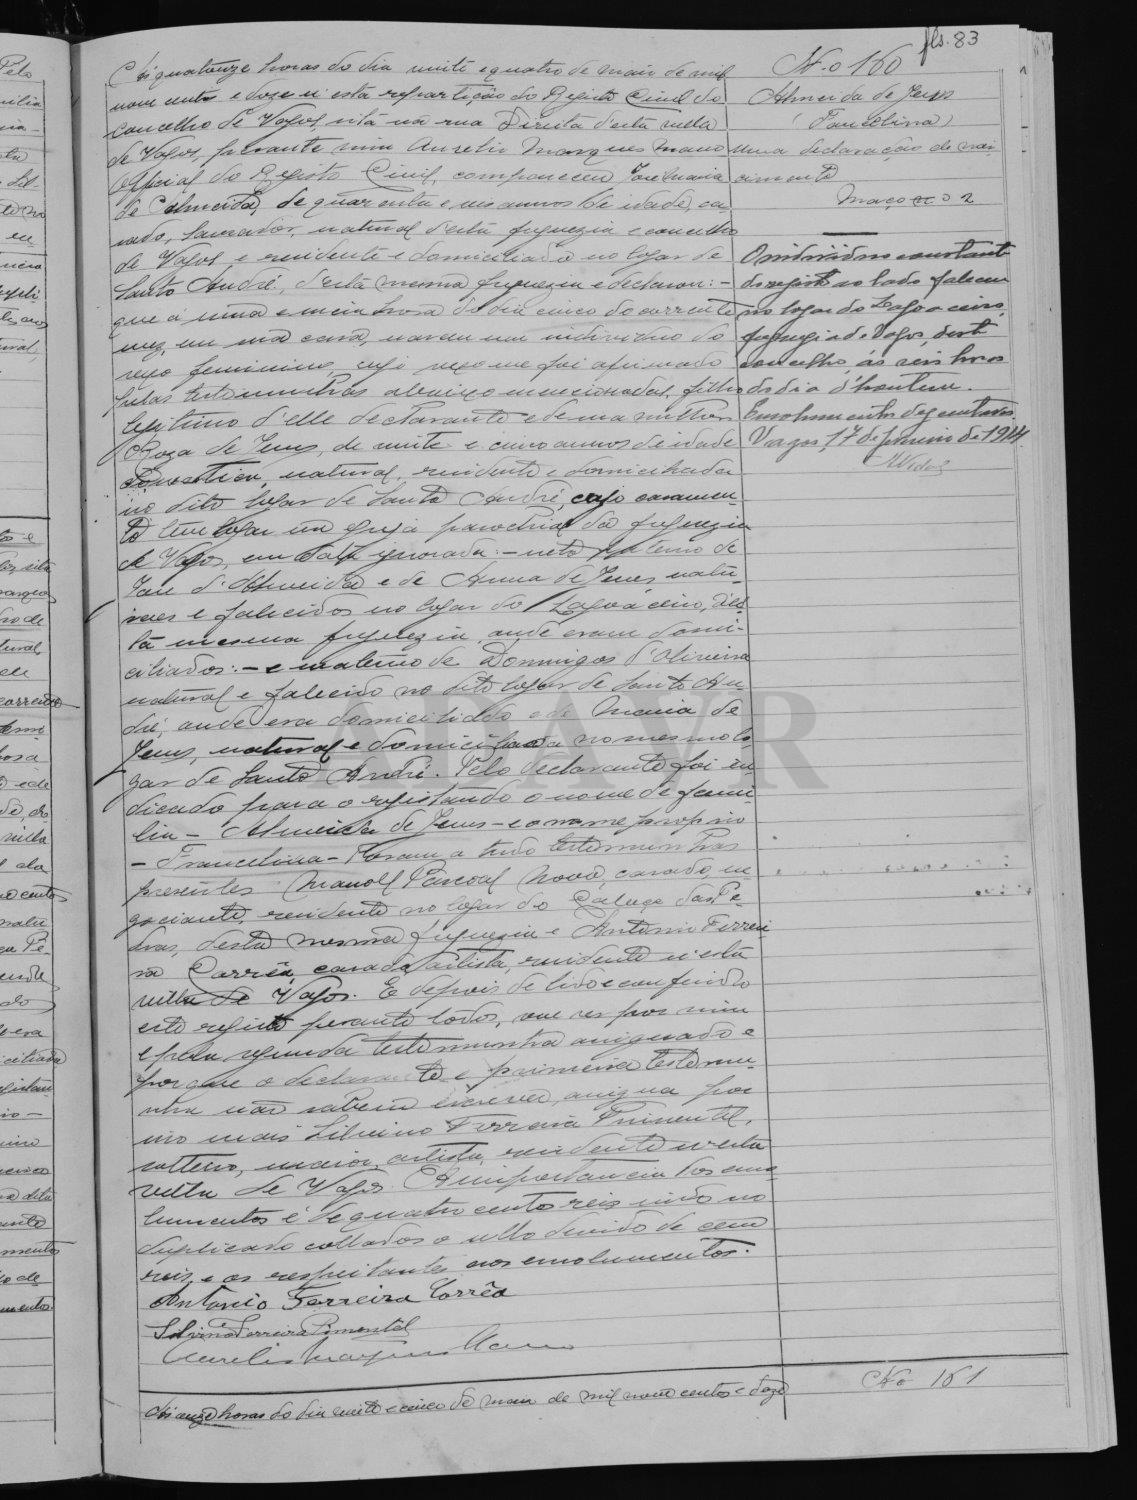 fls. 83
Ás quatorze horas do dia vinte e quatro de maio de mil
nove centos e doze n'esta repartição do Registo Civil do
Concelho de Vagos, sita na rua Direita d'esta villa
de Vagos, perante mim Aurelio Marques Mano
Official do Registo Civil, compareceu José Maria
de Almeida, de quarenta e seis annos de idade, ca-
sado, lavrador, natural d'esta freguezia e concelho
de Vagos e residente e domiciliado no logar de
Santo André, d'esta mesma freguezia e declarou: -
que á uma e meia hora do dia cinco do corrente
mez, em sua casa, nasceu um individuo do
sexo feminino, cujo sexo me foi afirmado
pelas testemunhas abaixo mencionadas, filho
legitimo d'elle declarante e de sua mulher
Roza de Jesus, de vinte e cinco annos de idade
domestica, natural, residente e domiciliada
no dito logar de Santo André, cujo casamen-
to teve logar na egreja parochial da freguezia
de Vagos, em data ignorada: - neto paterno de
José d'Almeida e de Anna de Jesus, natu-
raes e falecidos no logar do Lagoaceiro, des-
ta mesma freguezia, onde eram domi-
ciliados: - e materno de Domingos d'Oliveira
natural e falecido no dito logar de Santo An-
dré, onde era domiciliado e de Maria de
Jesus, natural e domiciliada no mesmo lo-
gar de Santo André. Pelo declarante foi in-
dicado para o registando o nome de fami-
lia - Almeida de Jesus - e o nome proprio
- Francelina - Foram a tudo testemunhas
presentes Manoel Pascoal Novo, casado, ne-
gociante, residente no logar do
desta mesma freguezia e Antonio Ferrei-
ra Corrêa, casado, artista, residente n'esta
villa de Vagos. E depois de lido e conferido
este registo perante todos, vae ser por mim
e pela segunda testemunha assignado e
porque o declarante e primeira testemu-
nha não sabem escrever, assigna por
Silvino Ferreira Pimentel,
solteiro, maior, artista, residente n'esta
villa de Vagos. A importancia dos emo-
lumentos é de quatro centos reis indo no
duplicado collados o sello devido de cem
reis, e os respeitantes aos emolumentos.
Antonio Ferreira Corrêa
Silvino Ferreira Pimentel
Aurelio Marques Mano
Ás onze horas do dia vinte e cinco de maio de mil nove centos e doze
N.o 160
Almeida de Jesus
(Francelina)
Uma declaração de nas-
cimento
Maço n.o 2
O individuo constante
do registo ao lado faleceu
no logar do Lagoaceiro,
freguezia de Vagos, deste
concelho, ás seis horas
do dia d'hontem.
Emolumentos dez centavos.
Vagos, 17 de janeiro de 1914
N.o 161
ADAVR